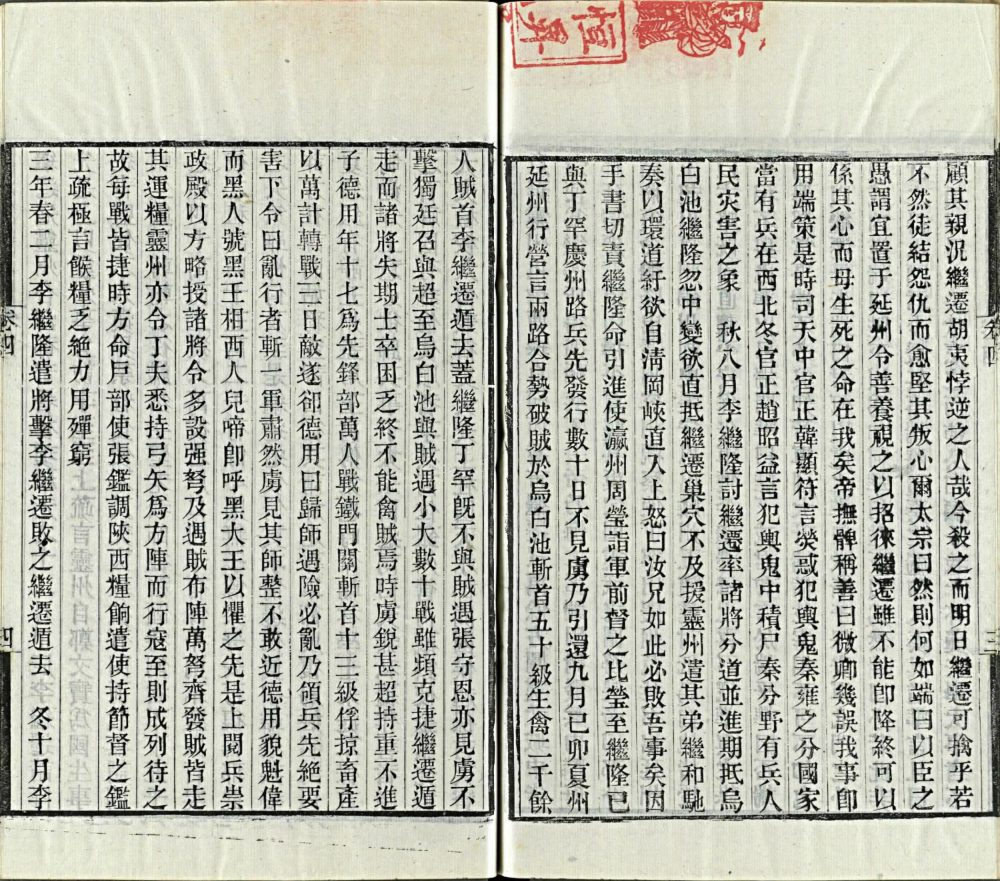 恒昇
顧其親況繼遷胡夷悖逆之人哉今殺之而明日繼遷可擒乎若
不然徒結怨仇而愈堅其叛心爾太宗曰然則何如端曰以臣之
愚謂宜置于延州令善養視之以招徠繼遷雖不能卽降終可以
係其心而母生死之命在我矣帝撫髀稱善曰微卿幾誤我事卽
用端策是時司天中官正韓顯符言熒惑犯輿鬼秦雍之分國家
當有兵在西北冬官正趙昭益言犯輿鬼中積尸秦分野有兵人
民灾害之象 秋八月李繼隆討繼遷率諸將分道並進期抵烏
白池繼隆忽中變欲直抵繼遷巢穴不及援靈州遣其弟繼和馳
奏以環道紆欲自清岡峽直入上怒曰汝兄如此必敗吾事矣因
手書切責繼隆命引進使瀛州周瑩詣軍前督之比瑩至繼隆已
與丁罕慶州路兵先發行數十日不見虜乃引還九月已卯夏州
延州行營言兩路合勢破賊於烏白池斬首五十級生禽二千餘
卷四
三
人賊首李繼遷遁去蓋繼隆丁罕旣不與賊遇張守恩亦見虜不
擊獨廷召與超至烏白池與賊遇小大數十戰雖頻克捷繼遷遁
走而諸將失期士卒困乏終不能禽賊焉時虜銳甚超持重不進
子德用年十七爲先鋒部萬人戰鐵門關斬首十三級俘掠畜產
以萬計轉戰三日敵遂卻德用曰歸師遇險必亂乃領兵先絕要
害下令曰亂行者斬一軍肅然虜見其師整不敢近德用貌魁偉
而黑人號黑王相西人兒啼卽呼黑大王以懼之先是上閱兵崇
政殿以方略授諸將令多設强弩及遇賊布陣萬弩齊發賊皆走
其運糧靈州亦令丁夫悉持弓矢爲方陣而行寇至則成列待之
故每戰皆捷時方命戶部使張鑑調陝西糧餉遣使持節督之鑑
上疏極言餱糧乏絕力用殫窮
三年春二月李繼隆遣將擊李繼遷敗之繼遷遁去 冬十月李
卷四
四